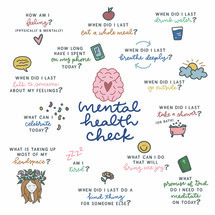 HOW AM I
feeling?
(PHYSICALLY & MENTALLY)
WHEN DID I LAST
eat a whole meal?
WHEN DID I LAST
drink water?
HOW LONG
HAVE I SPENT
on my phone
TODAY?
WHEN DID I LAST
breathe deeply?
WHEN DID I LAST
talk to someone
ABOUT MY FEELINGS?
WHEN DID I LAST
go outside?
WHAT CAN I
celebrate
TODAY?
mental
health
check
WHEN DID I LAST
take a shower?
(OR BATH!)
WHAT IS TAKING UP
MOST OF MY
headspace?
zzz
AM I
tired?
WHAT CAN I DO
THAT WILL
bring me joy?
WHEN DID I LAST DO A
kind thing
FOR SOMEONE ELSE?
WHAT
promise of God
DO I NEED TO
MEDITATE
ON TODAY?